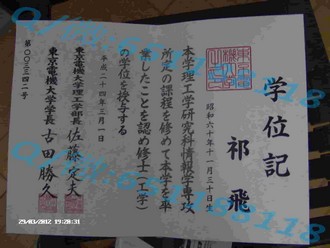 学位記
祁飛
昭和六十年十一月三十日生
本学理工学研究科情報学専攻
所定の課程を修めて本学を卒
業したことを認め修士(工学)
の学位を授与する
平成二十四年三月一日
東京電機大学理工学部長 佐藤定夫
東京電機大学学長 古田勝久
第〇〇三三四二号
29/03/2012 19:20:31